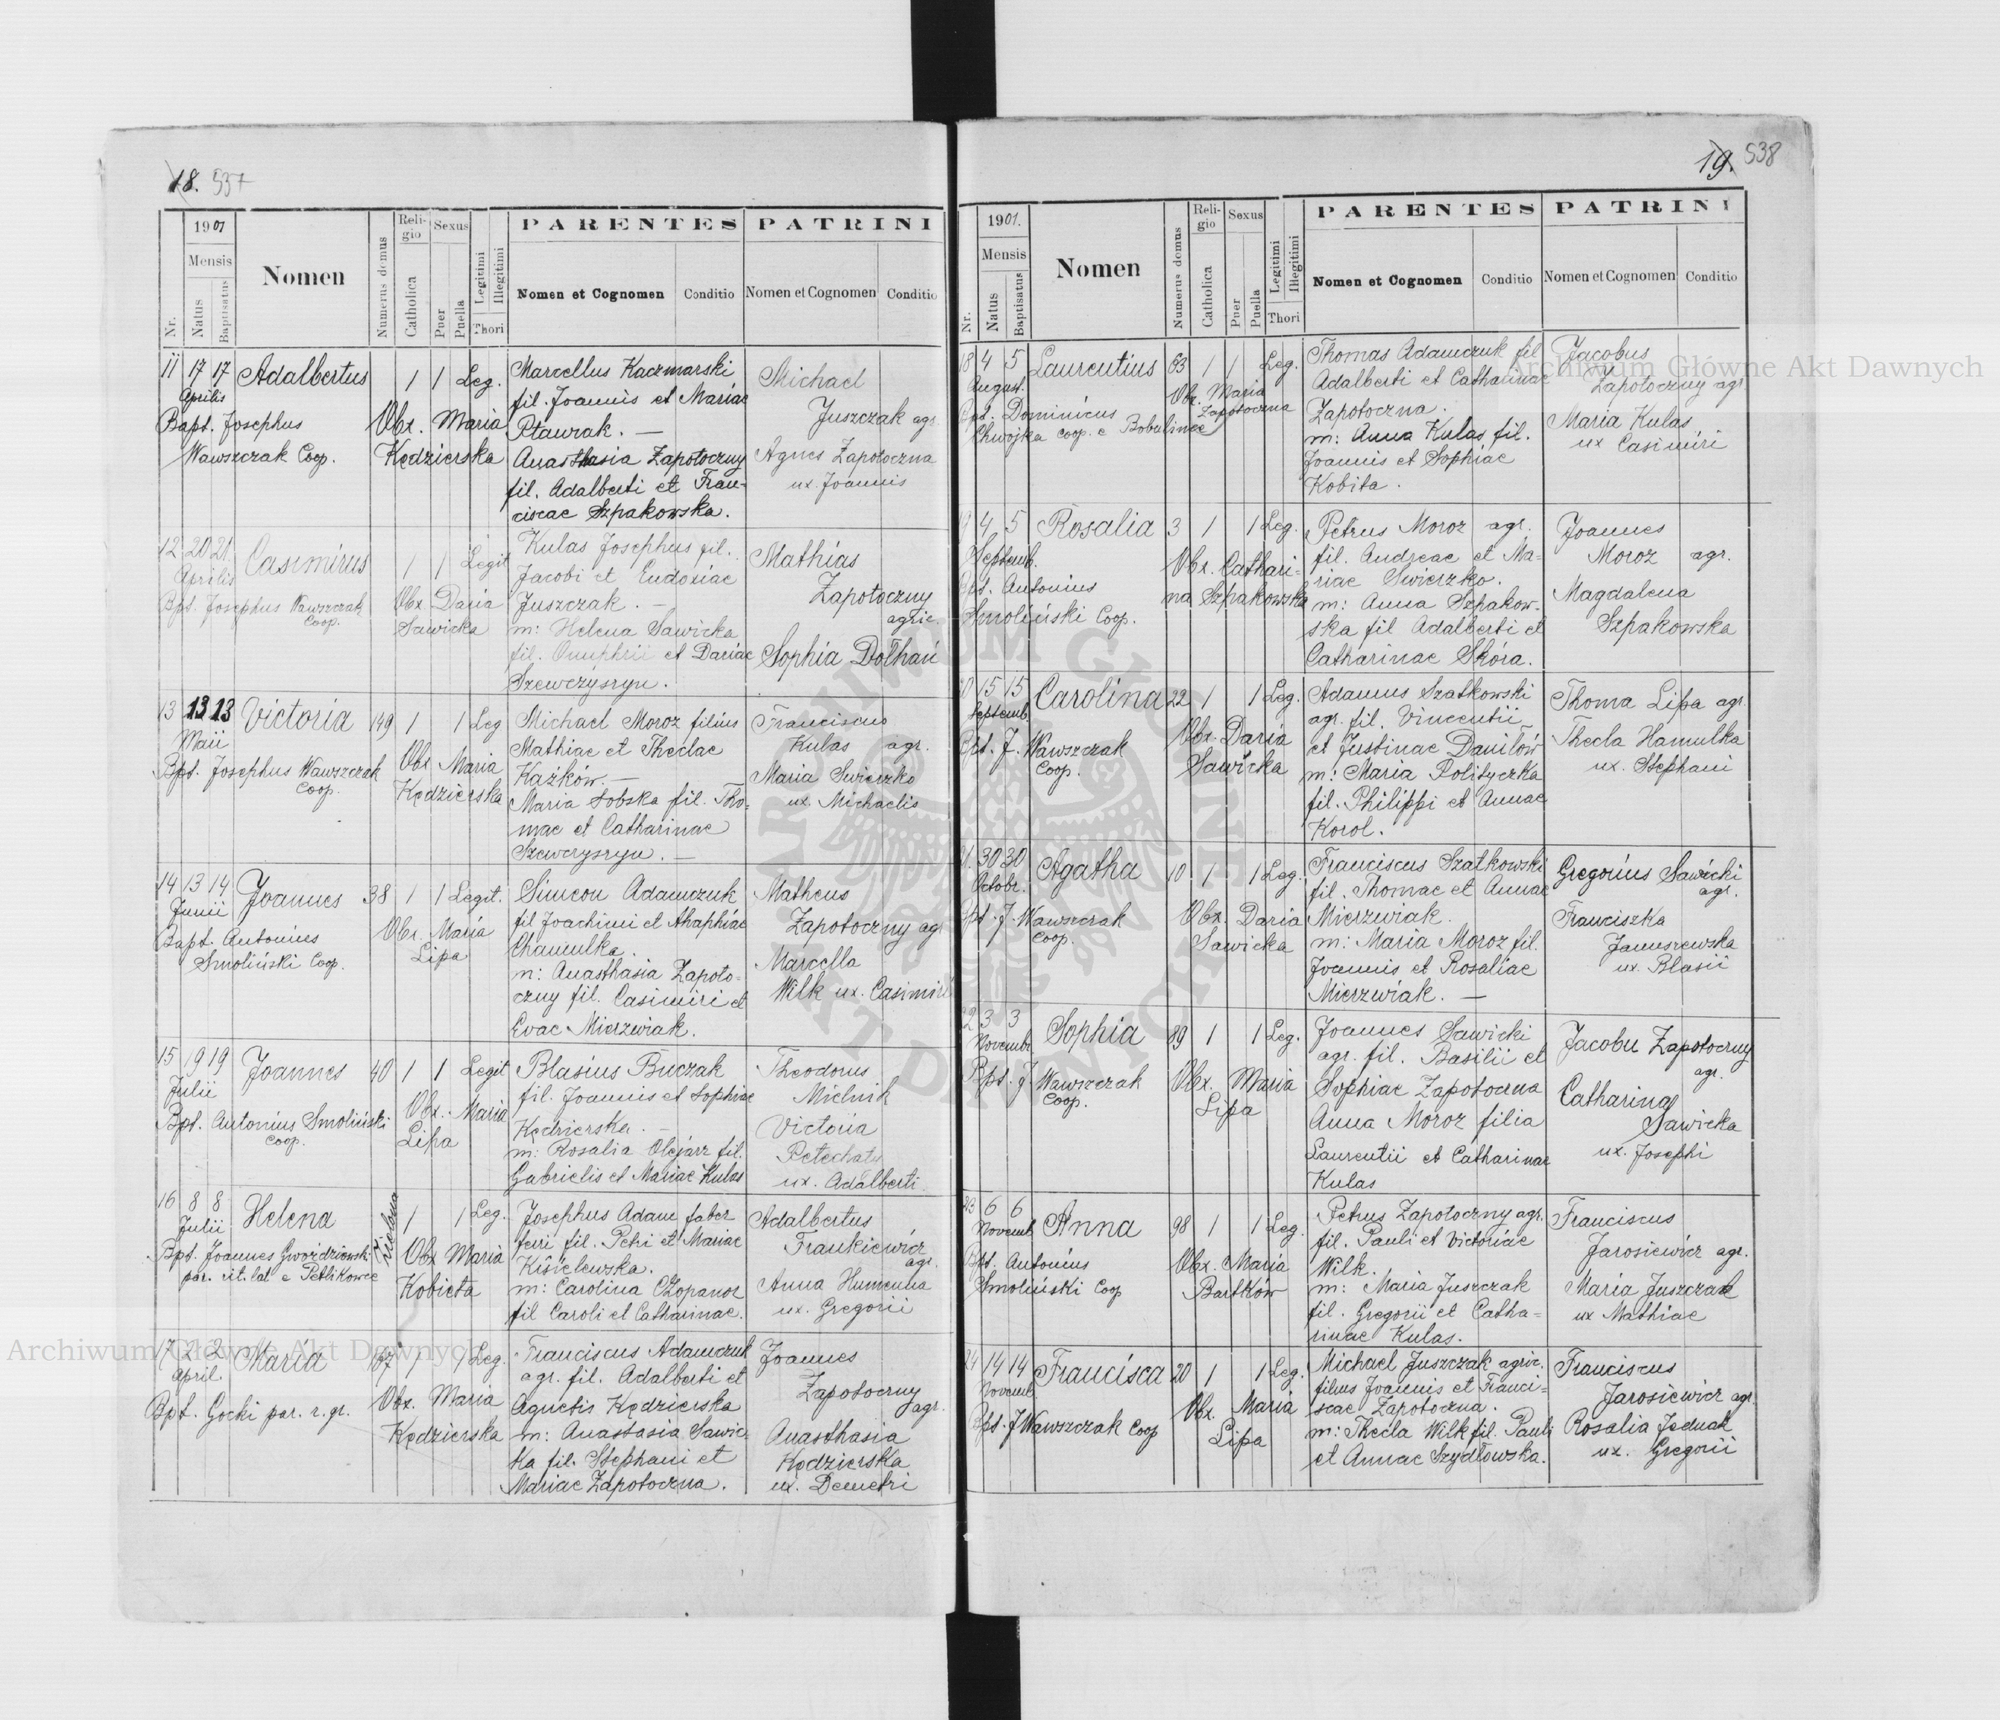 18. 537
1901
Mensis
Nr.
Natus
Baptisatus
Nomen
Numerus domus
Religio
Catholica
Sexus
Puer
Puella
Legitimi
Illegitimi
Thori
PARENTES
Nomen et Cognomen
Conditio
PATRINI
Nomen et Cognomen
Conditio
11 17 17 Adalbertus 1 1 Leg.
Aprilis
Bapt. Josephus
Wawszczak Coop.
Obx. Maria
Kędzierska
Marcellus Kaczmarski
fil. Joannis et Mariae
Ptaurak. —
Anasthasia Zapotoczny
fil. Adalberti et Fran-
ciscae Szpakowska.
Michael
Juszczak agr.
Agnes Zapotoczna
ux. Joannis
12 20 21 Casimirus 1 1 Legit
Aprilis
Bpt. Josephus Wawszczak
Coop.
Obx. Daria
Sawicka
Kulas Josephus fil.
Jacobi et Eudoxiae
Juszczak. —
m: Helena Sawicka
fil. Onuphrii et Dariae
Szewczyszyn.
Mathias
Zapotoczny
agric.
Sophia Dołhań
13 13 13 Victoria 149 1 1 Leg
Maii
Bpt. Josephus Wawszczak
Coop.
Obx Maria
Kędzierska
Michael Moroz filius
Mathiae et Theclae
Każków. —
Maria Sobska fil. Tho-
mae et Catharinae
Szewczyszyn. —
Franciscus
Kulas agr.
Maria Swierzko
ux. Michaelis
14 13 14 Joannes 38 1 1 Legit.
Junii
Bapt. Antonius
Smoliński Coop.
Obx. Maria
Lipa
Simeon Adamczuk
fil Joachimi et Ahaphiae
Chamulka.
m: Anasthasia Zapoto-
czny fil. Casimiri et
Evae Mierzwiak.
Matheus
Zapotoczny agr
Marcella
Wilk ux. Casimiri
15 19 19 Joannes 40 1 1 Legit
Julii
Bpt. Antonius Smoliński
coop.
Obx. Maria
Lipa
Blasius Buczak
fil. Joannis et Sophiae
Kędzierska. —
m: Rosalia Olejarz fil.
Gabrielis et Mariae Kulas
Theodorus
Mielnik
Victoria
Petechaty
ux. Adalberti
16 8 8 Helena 1 1 Leg.
Julii
Bpt. Joannes Gwoździowski
par. rit. lat e Petlikowce
Zielona
Obx Maria
Kobieta
Josephus Adam faber
ferri fil. Petri et Mariae
Kisielewska.
m: Carolina Czopanoz
fil Caroli et Catharinae.
Adalbertus
Frankiewicz
agr.
Anna Humenna
ux. Gregorii
17 2 2 Maria 67 1 1 Leg.
April.
Bpt. Gocki par. r. gr.
Obx. Maria
Kędzierska
Franciscus Adamczuk
agr. fil. Adalberti et
Agnetis Kędzierska
m: Anastasia Sawic-
ka fil. Stephani et
Mariae Zapotoczna.
Joannes
Zapotoczny
agr.
Anasthasia
Kędzierska
ux. Demetri
19. 538
1901.
Mensis
Nr.
Natus
Baptisatus
Nomen
Numerus domus
Religio
Catholica
Sexus
Puer
Puella
Legitimi
Illegitimi
Thori
PARENTES
Nomen et Cognomen
Conditio
PATRINI
Nomen et Cognomen
Conditio
18 4 5 Laurentius 63 1 1 Leg.
August.
Bpt. Dominicus
Chwojka coop. e Bobulince
Obx. Maria
Zapotoczna
Thomas Adamczuk fil
Adalberti et Catharinae
Zapotoczna.
m: Anna Kulas fil.
Joannis et Sophiae
Kobita.
Jacobus
Zapotoczny agr
Maria Kulas
ux Casimiri
19 4 5 Rosalia 3 1 1 Leg.
Septemb.
Bpt. Antonius
Smoliński Coop.
Obx. Cathari-
na Szpakowska
Petrus Moroz agr.
fil. Andreae et Ma-
riae Swierzko.
m: Anna Szpakow-
ska fil Adalberti et
Catharinae Skóra.
Joannes
Moroz agr.
Magdalena
Szpakowska
20 15 15 Carolina 22 1 1 Leg.
Septemb.
Bpt. J. Wawszczak
Coop.
Obx. Daria
Sawicka
Adamus Szatkowski
agr. fil. Vincentii
et Justinae Daniłów
m: Maria Polityczka
fil. Philippi et Annae
Korol.
Thoma Lipa agr.
Thecla Hamulka
ux. Stephani
21. 30 30 Agatha 10 1 1 Leg.
Octobr.
Bpt. J. Wawszczak
Coop.
Obx. Daria
Sawicka
Franciscus Szatkowski
fil. Thomae et Annae
Mierzwiak.
m: Maria Moroz fil.
Joannis et Rosaliae
Mierzwiak. —
Gregorius Sawicki
agr.
Franciszka
Januszewska
ux. Blasii
22 3 3 Sophia 89 1 1 Leg.
Novembr
Bpt. J. Wawszczak
Coop.
Obx. Maria
Lipa
Joannes Sawicki
agr. fil. Basilii et
Sophiae Zapotoczna
Anna Moroz filia
Laurentii et Catharinae
Kulas
Jacobu Zapotoczny
agr.
Catharina
Sawicka
ux. Josephi
23 6 6 Anna 98 1 1 Leg
Novemb.
Bpt. Antonius
Smoliński Coop
Obx. Maria
Bartków
Petrus Zapotoczny agr.
fil. Pauli et Victoriae
Wilk.
m: Maria Juszczak
fil. Gregorii et Catha-
rinae Kulas.
Franciscus
Jarosiewicz agr.
Maria Juszczak
ux Mathiae
24 14 14 Francisca 20 1 1 Leg.
Novemb.
Bpt. J Wawszczak Coop
Obx. Maria
Lipa
Michael Juszczak agric.
filius Joannis et Franci-
scae Zapotoczna.
m: Thecla Wilk fil. Pauli
et Annae Szydłowska.
Franciscus
Jarosiewicz agr
Rosalia Jednak
ux. Gregorii
Archiwum Główne Akt Dawnych
Archiwum Główne Akt Dawnych
ARCHIWUM GŁÓWNE AKT DAWNYCH